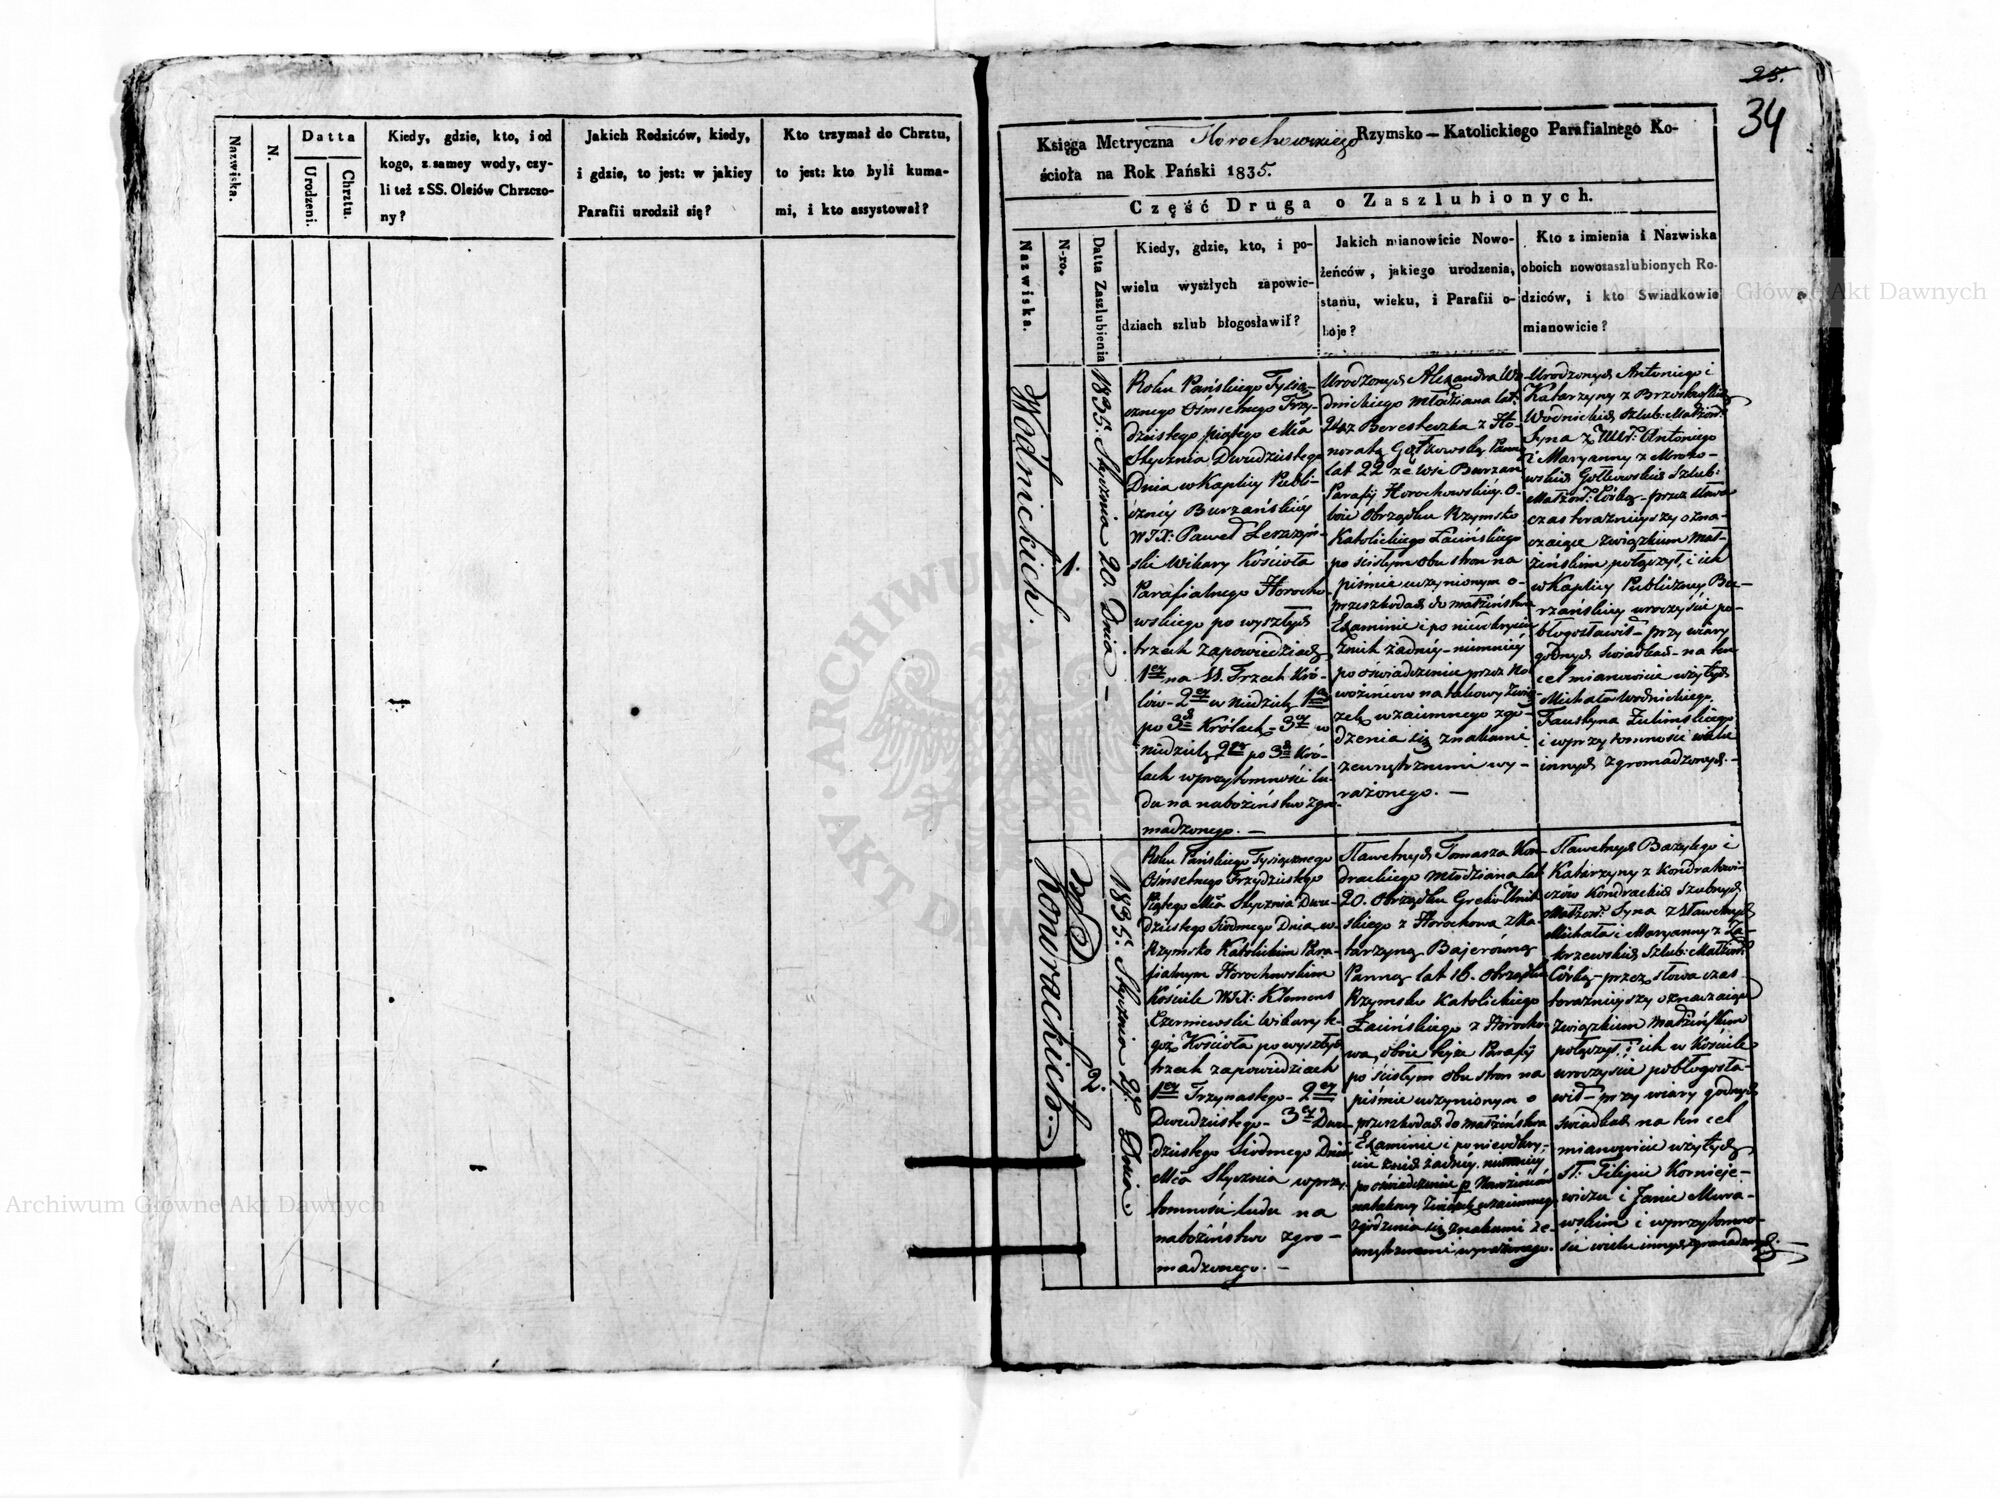 25.
34
Nazwiska.
N.
Datta
Urodzeni.
Chrztu.
Kiedy, gdzie, kto, i od
kogo, z samey wody, czy-
li też z SS. Oleiów Chrzczo-
ny?
Jakich Rodziców, kiedy,
i gdzie, to jest: w jakiey
Parafii urodził się?
Kto trzymał do Chrztu,
to jest: kto byli kuma-
mi, i kto assystował?
Księga Metryczna Horochowskiego Rzymsko-Katolickiego Parafialnego Ko-
ścioła na Rok Pański 1835.
Część Druga o Zaszlubionych.
Nazwiska.
N-ro.
Datta Zaszlubienia
Kiedy, gdzie, kto, i po-
wielu wyszłych zapowie-
dziach szlub błogosławił?
Jakich mianowicie Nowo-
żeńców, jakiego urodzenia,
stanu, wieku, i Parafii o-
boje?
Kto z imienia i Nazwiska
oboich nowozaszlubionych Ro-
dziców, i kto Swiadkowie
mianowicie?
Wodnickich.
1.
1835. Stycznia 20. Dnia
Roku Pańskiego Tysią-
cznego Ośmsetnego Trzy-
dziestego piątego Mca
Stycznia Dwudziestego
Dnia w Kaplicy Publi-
czney Burzańskiey
WJX: Paweł Leszczyń-
ski Wikary Kościoła
Parafialnego Horocho-
wskiego po wyszłych
trzech zapowiedziach
1ey na SS. Trzech Kró-
lów- 2ey w niedzielę 1ą
po 3ch Królach- 3ey w
niedzielę 2ą po 3ch Kró-
lach w przytomności lu-
du na nabożeństwo zgro-
madzonego. —
Urodzonych Alexandra Wo-
dnickiego młodziana lat
24 z Beresteczka z Ho-
noratą Gołkowską Panną
lat 22 ze wsi Burzan
Parafij Horochowskiey. O-
boie obrządku Rzymsko
Katolickiego Łacińskiego
po ścisłym obu stron na
piśmie uczynionym o
przeszkodach do małżeństwa
Examinie i po nieodkryciu
żadney- niemniey
po oświadczenie przez No-
wożeńców na takowy Zwią-
zek wzaiemnego zgo-
dzenia się znakami
zewnętrznemi wy-
rażonego. —
Urodzonych Antoniego i
Katarzyny z
Wodnickich Szlub: Małżon:
Syna z Antoniego
i Maryanny z
Szlub:
Małżon: Córką- przez słowa
czas teraznieyszy ozna-
czaiące związkiem mał-
żeńskim połączył, i ich
w Kaplicy Publiczney Bu-
rzańskiey uroczyście po-
błogosławił- przy wiary
godnych Swiadkach- na ten
cel mianowicie wziętych
Michała Wodnickiego,
Faustyna
i w przytomności wielu
innych zgromadzonych.-
Kondrackich.
2.
1835. Stycznia 27. Dnia.
Roku Pańskiego Tysiącznego
Ośmsetnego Trzydziestego
Piątego Mca Stycznia Dwu-
dziestego Siodmego Dnia w
Rzymsko Katolickim Para-
fialnym Horochowskim
Kościele WJX: Klemens
Czerniewski Wikary te-
goż Kościoła po wyszłych
trzech zapowiedziach
1ey Trzynastego- 2ey
Dwudziestego- 3ey Dwu-
dziestego Siodmego Dnia
Mca Stycznia w przy-
tomności ludu na
nabożeństwo zgro-
madzonego. —
Sławetnych Tomasza Kon-
drackiego młodziana lat
20. obrządku Greko Unit-
skiego z Horochowa z Ka-
tarzyną Bajerówną
Panną lat 16. obrządku
Rzymsko Katolickiego
Łacińskiego z Horocho-
wa, obie teyże Parafij
po ścisłym obu stron na
piśmie uczynionym o
przeszkodach do małżeństwa
Examinie i po nieodkry-
ciu żadney. niemniey
po oświadczenie p Nowożeńców
na takowy Związek wzaiemnego
zgodzenia się znakami ze-
wnętrznemi wyrażonego.
Sławetnych Bazylego i
Katarzyny z Kondratowi-
czów Kondrackich Szlubnych
Małżon: Syna z Sławetnych
Michała i Maryanny z Za-
krzewskich Szlub: Małżon:
Córką- przez słowa czas
teraznieyszy oznaczaiące
Związkiem Małżeńskim
połączył, i ich w Kościele
uroczyście pobłogosła-
wił- przy wiary godnych
Swiadkach na ten cel
mianowicie wziętych
St: Filipie Kornieje-
wiczu i Janie Mura-
wskim i w przytomno-
ści wielu innych zgromadzonych.
Archiwum Główne Akt Dawnych
Archiwum Główne Akt Dawnych
ARCHIWUM GŁÓWNE AKT DAWNYCH